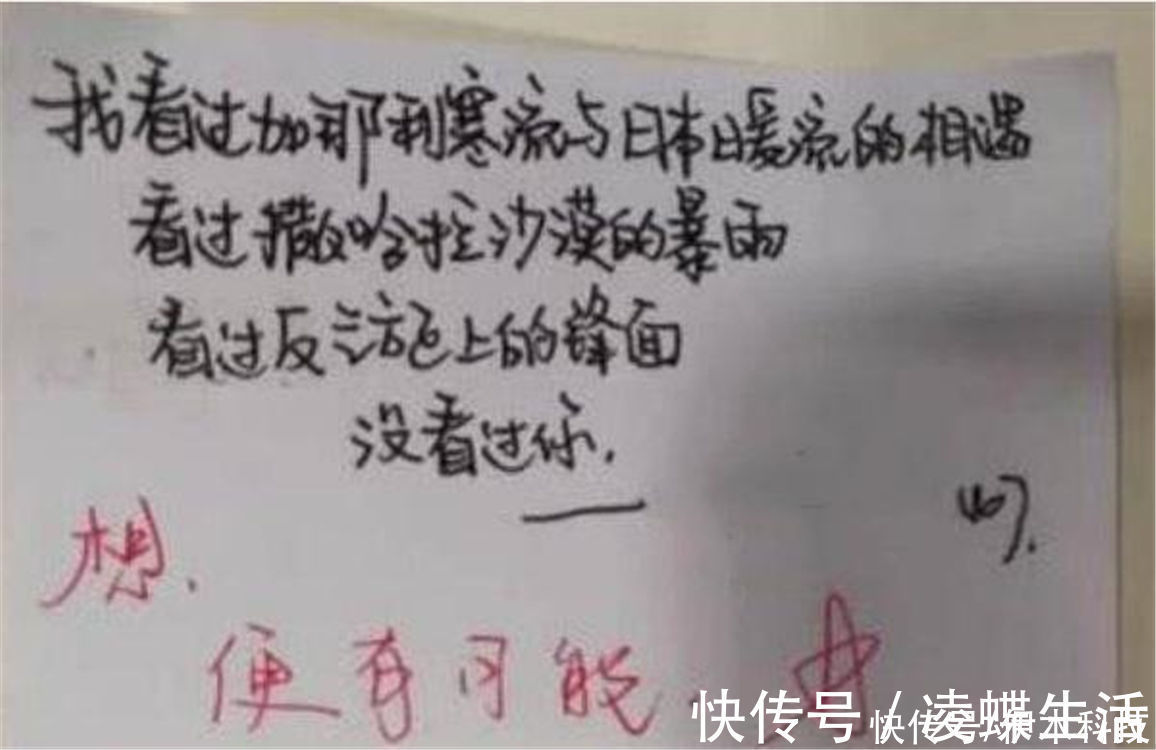 我看过加那利寒流与日本暖流的相遇
看过撒哈拉沙漠的暴雨
看过反气旋上的锋面
没看过你.
想.
便有可能.
快传号 / 凌蝶生活
快传号